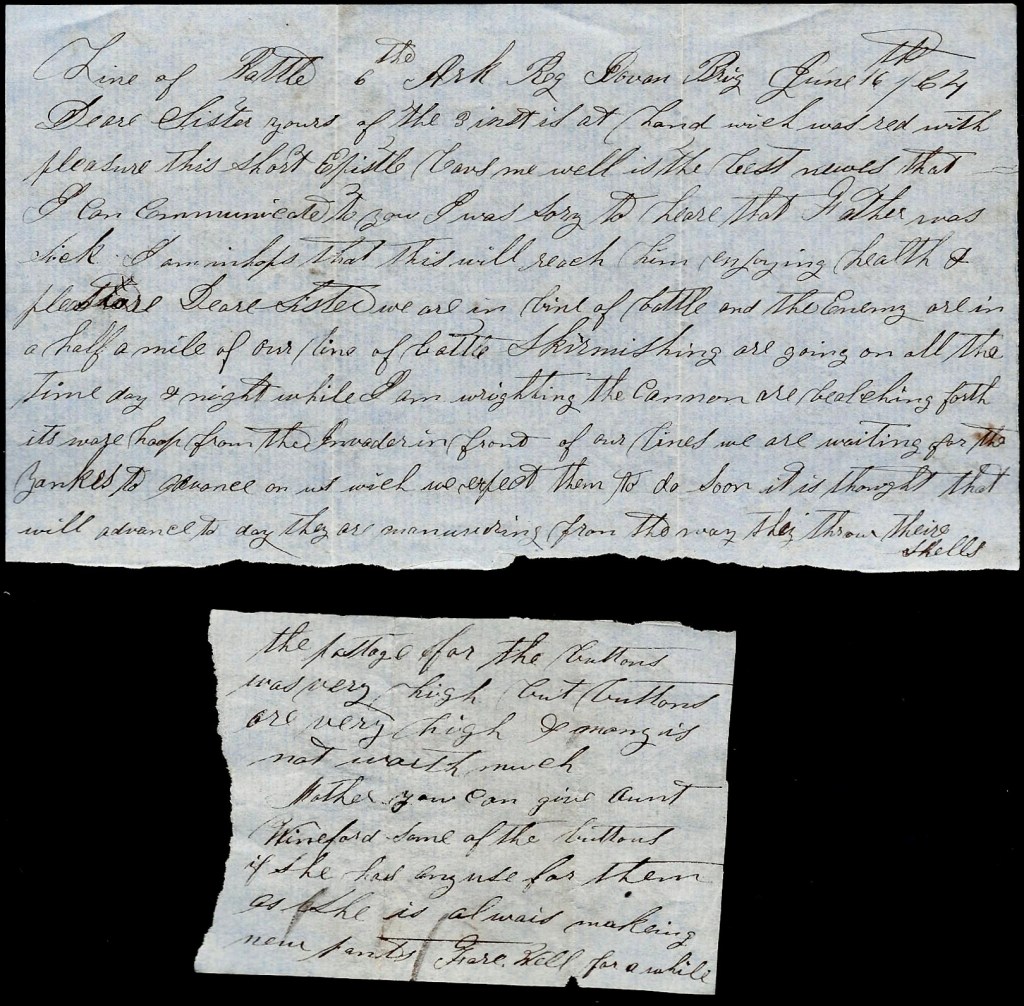 Line of Battle 6the Ark Reg Govan Brig June 16th/64
Deare Sister yours of the 3 inst is at hand wich was red with
pleasure this short Epistle leavs me well is the best newes that
I can communicate to you I was sory to heare that Father was
sick I am in hops that this will reach him enjoying health &
pleasure Deare Sister we are in line of battle and the Enemy are in
a half a mile of our line of battle Skirmishing are going on all the
time day & night while I am wrighting the Cannon are bealching forth
its ware hoop from the Invader in front of our lines we are waiting for the
yankes to advance on us wich we expect them to do soon it is thought that
will advance to day they are manuvering from the way they throw theire
Shells
the postage for the buttons
was very high but buttons
are very high & mony is
not worth much
Mother you can give aunt
Wineford some of the buttons
if she has any use for them
as she is alwais making
new pants Fare Well for a while